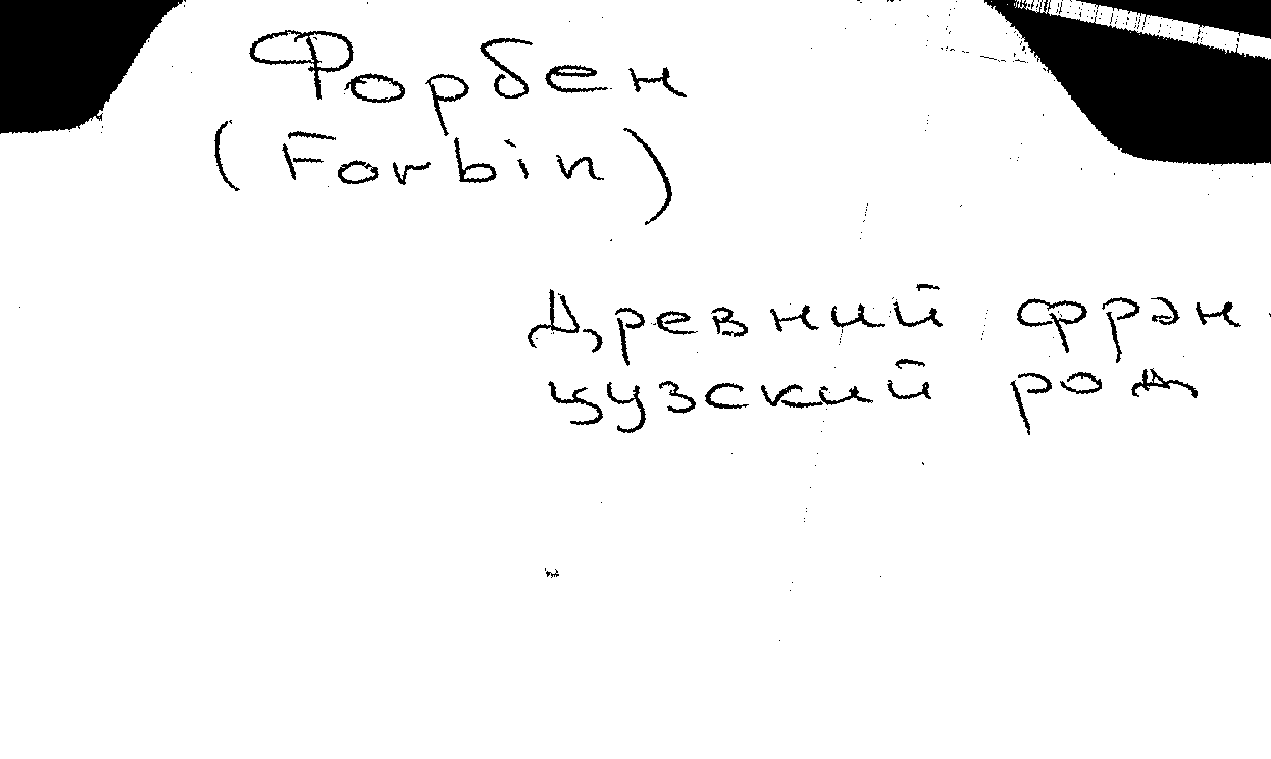 Форбен
(Forbin)
Древний фран-
цузский род